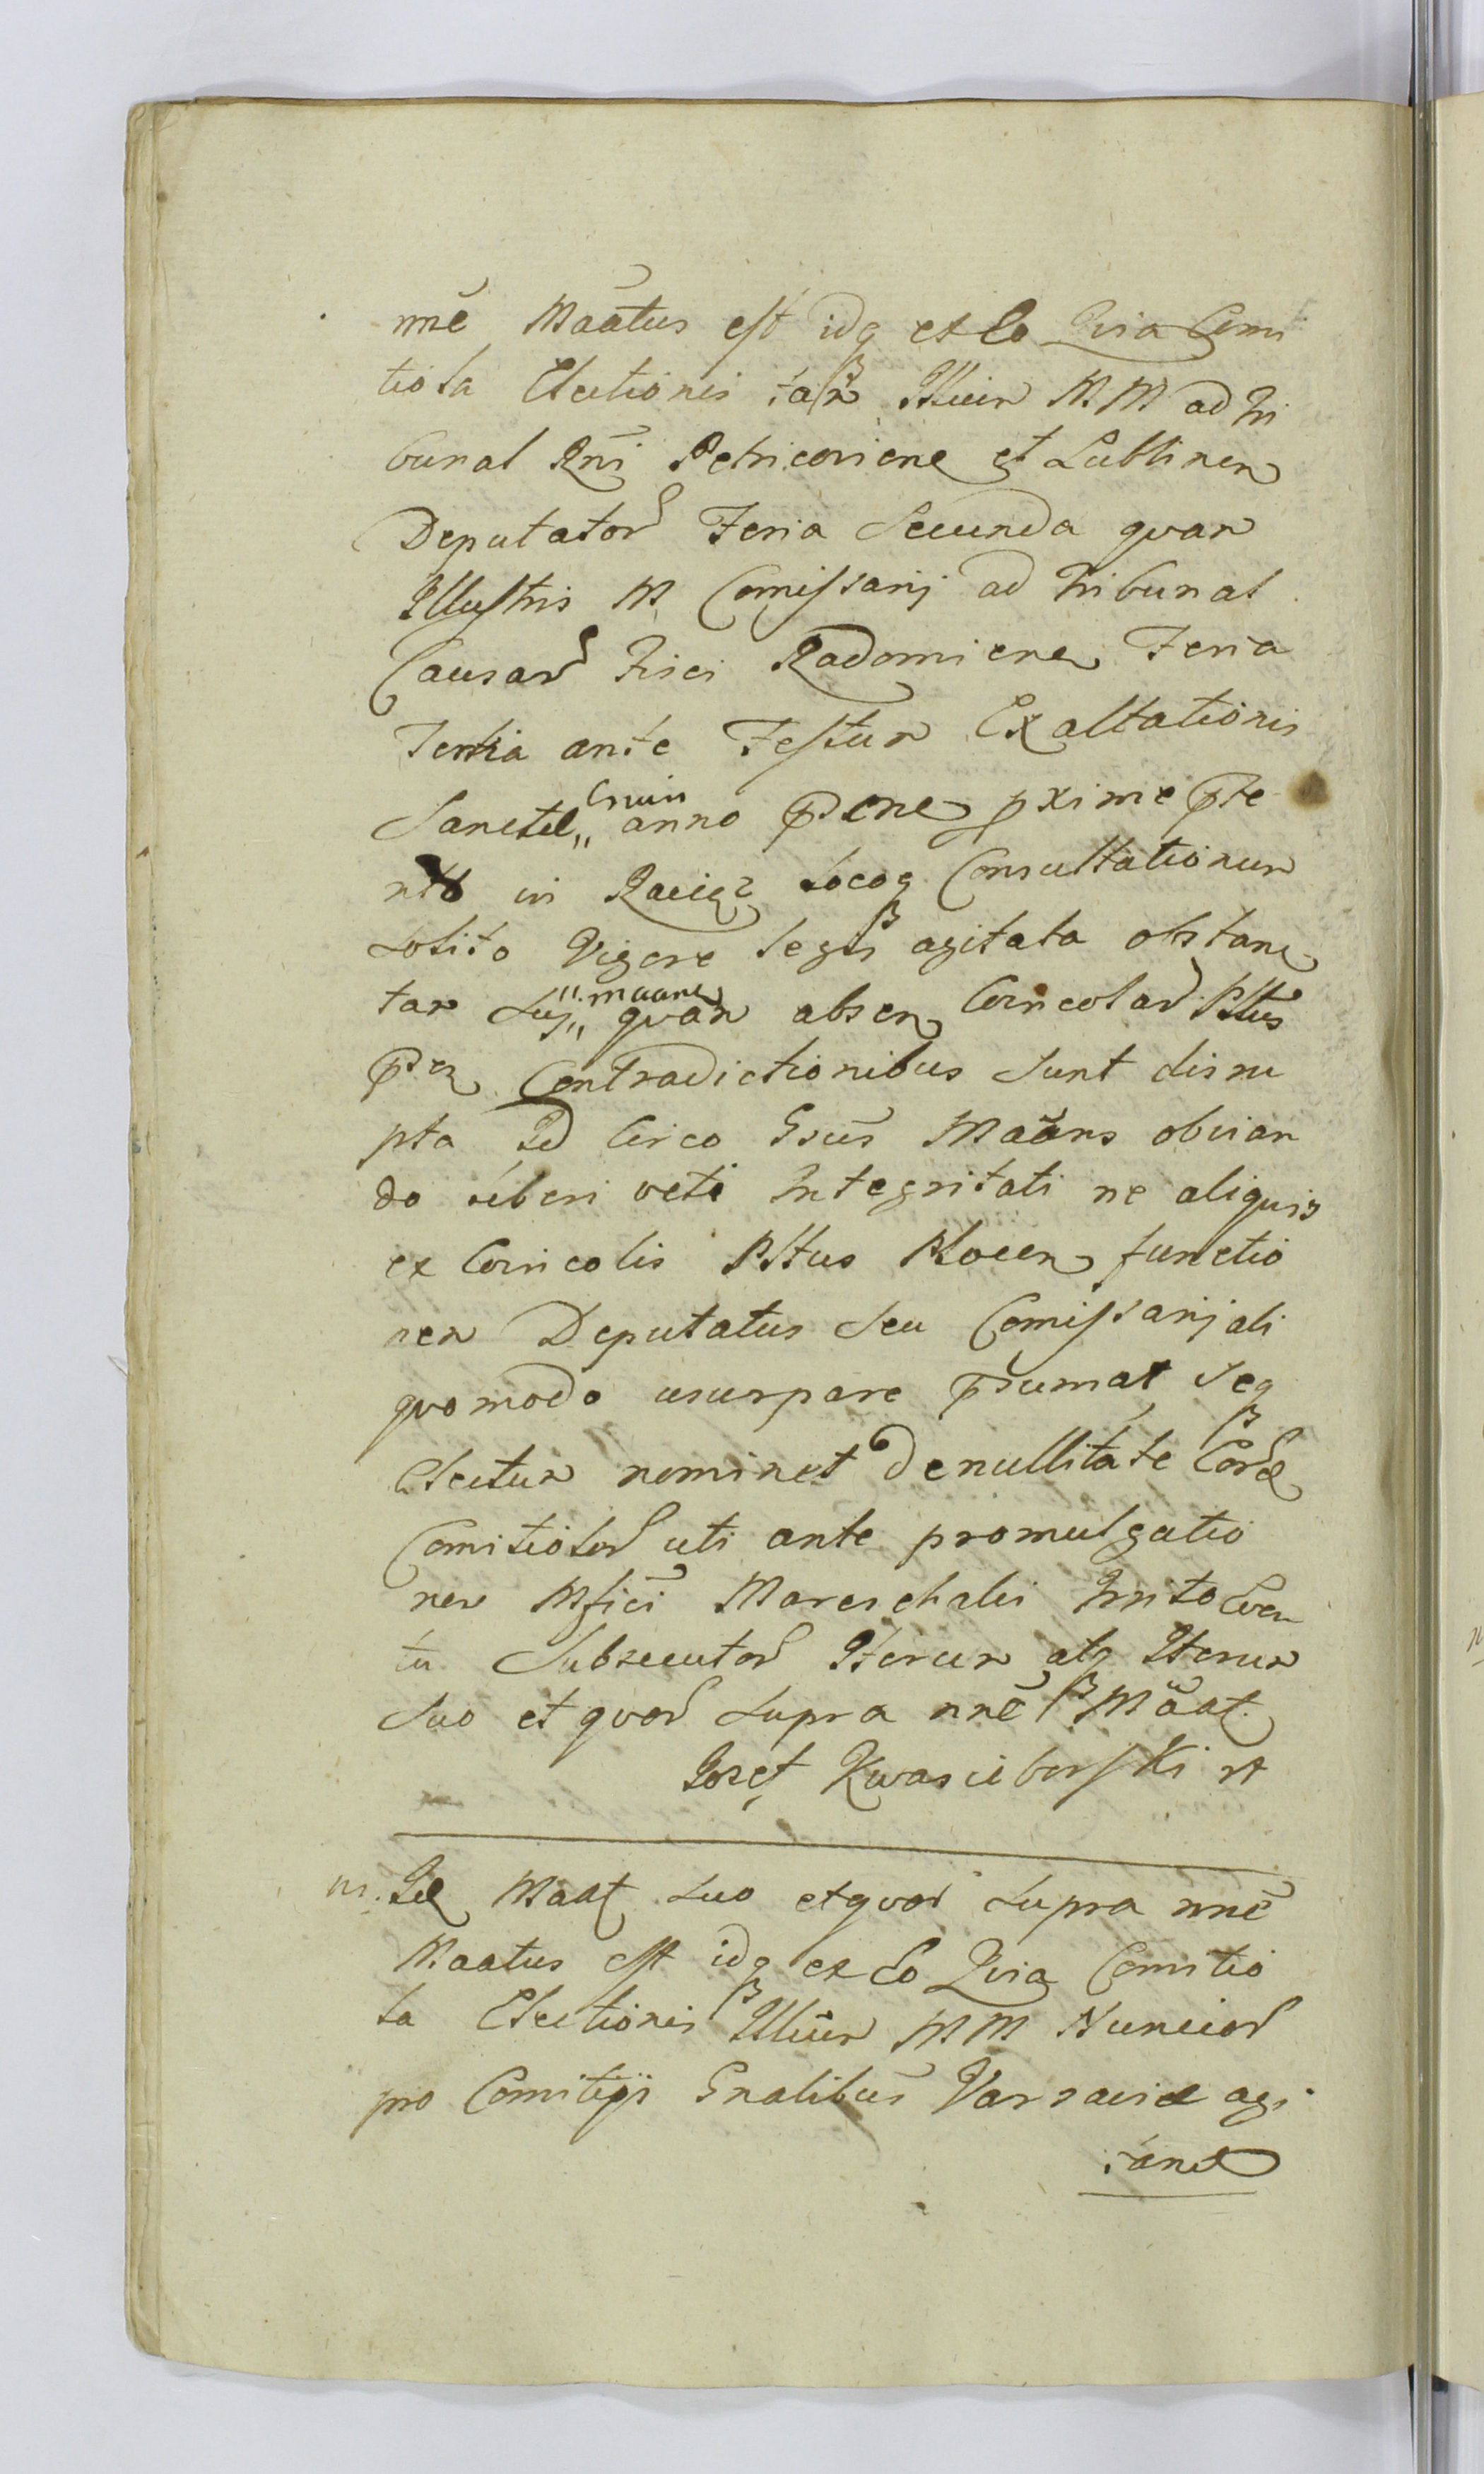 nne Maatus est idq ex Eo Quia Comi
tiola Electionis tam Illmm M M ad Tri
bunal Rni Petricoviene et Lublinen
Deputator Feria Secunda quam
Illustris M Comissarij ad Tribunal
Causar Fisci Radomiene Feria
Tertia ante Festum Exaltationis
Sanctae Crucis anno pnne pxime pte
rito in Raciąz Locoq Consultationum
solito Vigore Legis agitata obstane
tam Suj maane quam absen Coincolar Pttus
Contradictionibus sunt disru
pta Id Circo Gsus Maans obvian
do liberi veti Integritati ne aliquis
ex Coincolis Pttus Plocen functio
nem Deputatus seu Comissarij ali
quomodo usurpare psumat seq
Electum nominet De nullitate Eord
Comitiolor uti ante promulgatio
nem Mfici Mareschalci Irrito Even
tu Subsecutor Iterum atq Iterum
Suo et quor supra nne Maat.
Jozef Kwasieborski
m. Idem Maat suo et quor supra nne
Maatus est idq ex Eo Quia Comitio
la Electionis Illmm M M Nuncior
pro Comitijs Gnalibus Varsaviae agi
tand